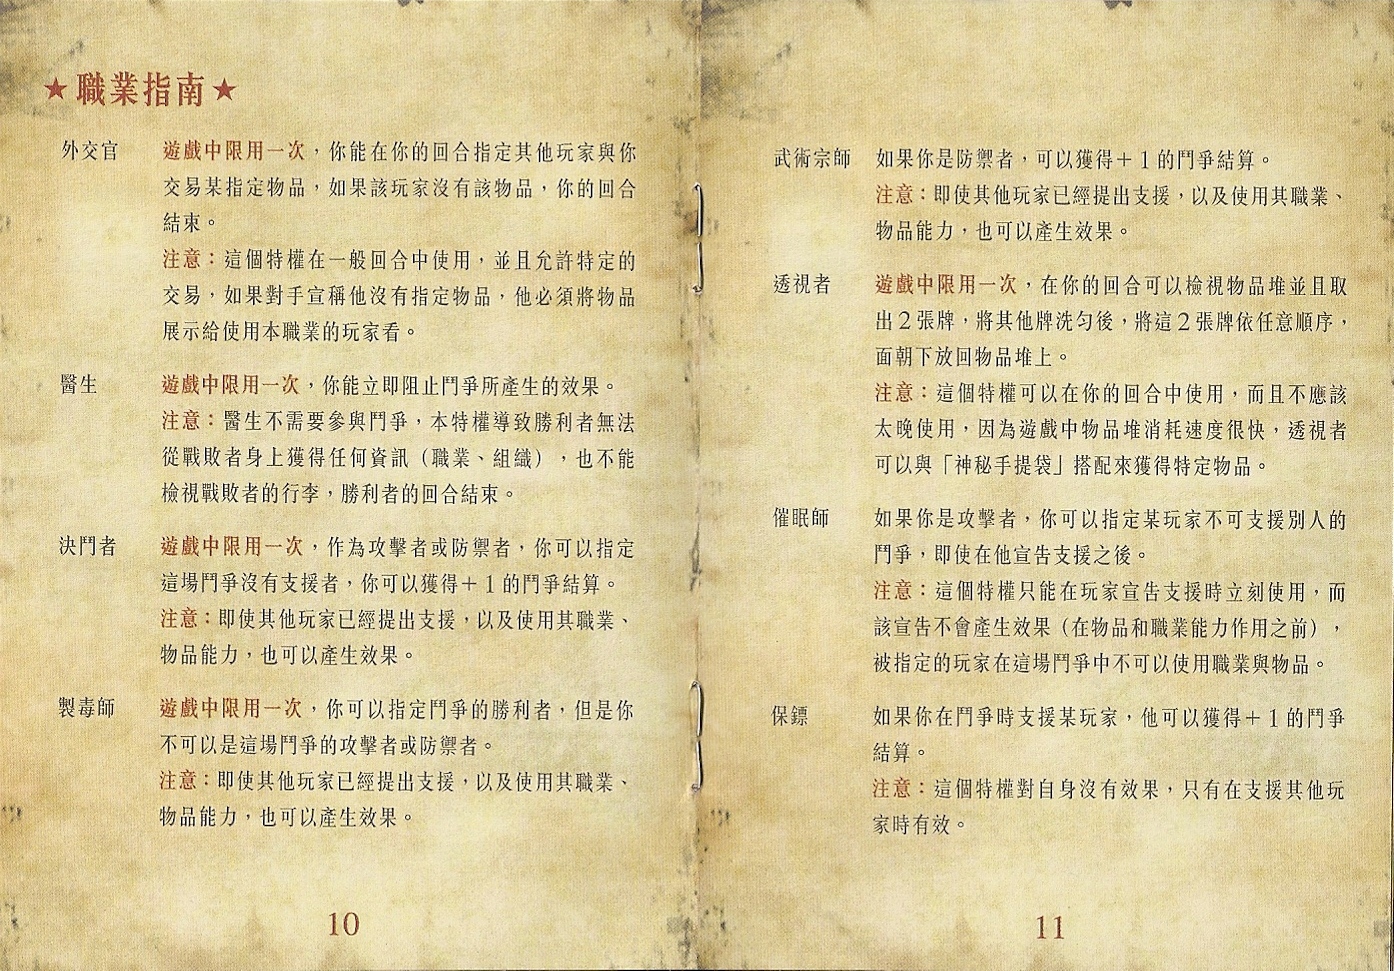 ★職業指南★
外交官 遊戲中限用一次，你能在你的回合指定其他玩家與你
交易某指定物品，如果該玩家沒有該物品，你的回合
結束。
注意：這個特權在一般回合中使用，並且允許特定的
交易，如果對手宣稱他沒有指定物品，他必須將物品
展示給使用本職業的玩家看。
醫生 遊戲中限用一次，你能立即阻止鬥爭所產生的效果。
注意：醫生不需要參與鬥爭，本特權導致勝利者無法
從戰敗者身上獲得任何資訊（職業、組織），也不能
檢視戰敗者的行李，勝利者的回合結束。
決鬥者 遊戲中限用一次，作為攻擊者或防禦者，你可以指定
這場鬥爭沒有支援者，你可以獲得＋１的鬥爭結算。
注意：即使其他玩家已經提出支援，以及使用其職業、
物品能力，也可以產生效果。
製毒師 遊戲中限用一次，你可以指定鬥爭的勝利者，但是你
不可以是這場鬥爭的攻擊者或防禦者。
注意：即使其他玩家已經提出支援，以及使用其職業、
物品能力，也可以產生效果。
10
武術宗師 如果你是防禦者，可以獲得＋１的鬥爭結算。
注意：即使其他玩家已經提出支援，以及使用其職業、
物品能力，也可以產生效果。
透視者 遊戲中限用一次，在你的回合可以檢視物品堆並且取
出２張牌，將其他牌洗勻後，將這２張牌依任意順序，
面朝下放回物品堆上。
注意：這個特權可以在你的回合中使用，而且不應該
太晚使用，因為遊戲中物品堆消耗速度很快，透視者
可以與「神秘手提袋」搭配來獲得特定物品。
催眠師 如果你是攻擊者，你可以指定某玩家不可支援別人的
鬥爭，即使在他宣告支援之後。
注意：這個特權只能在玩家宣告支援時立刻使用，而
該宣告不會產生效果（在物品和職業能力作用之前），
被指定的玩家在這場鬥爭中不可以使用職業與物品。
保鏢 如果你在鬥爭時支援某玩家，他可以獲得＋１的鬥爭
結算。
注意：這個特權對自身沒有效果，只有在支援其他玩
家時有效。
11